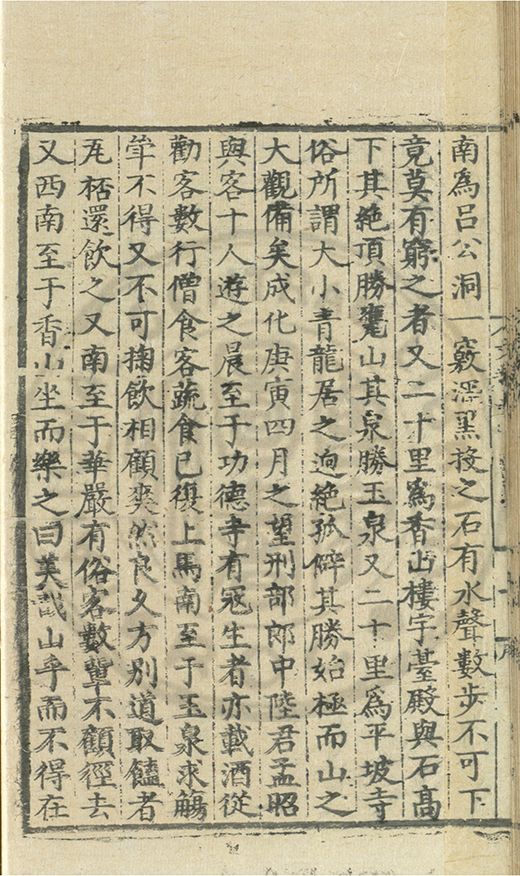 南為呂公洞一竅深黑投之石有水聲數步不可下
竟莫有窮之者又二十里為香山樓宇臺殿與石高
下其絶頂勝甕山其泉勝玉泉又二十里為平坡寺
俗所謂大小青龍居之迥絶孤僻其勝始極而山之
大觀備矣成化庚寅四月之望刑部郎中陸君孟昭
與客十人遊之晨至于功德寺有冠生者亦載酒從
勸客數行僧食客蔬食已復上馬南至于玉泉求觴
斝不得又不可掬飲相顧爽然良久方別道取饁者
瓦桮還飲之又南至于華嚴有俗客數輩不顧徑去
又西南至于香山坐而樂之曰美哉山乎而不得在